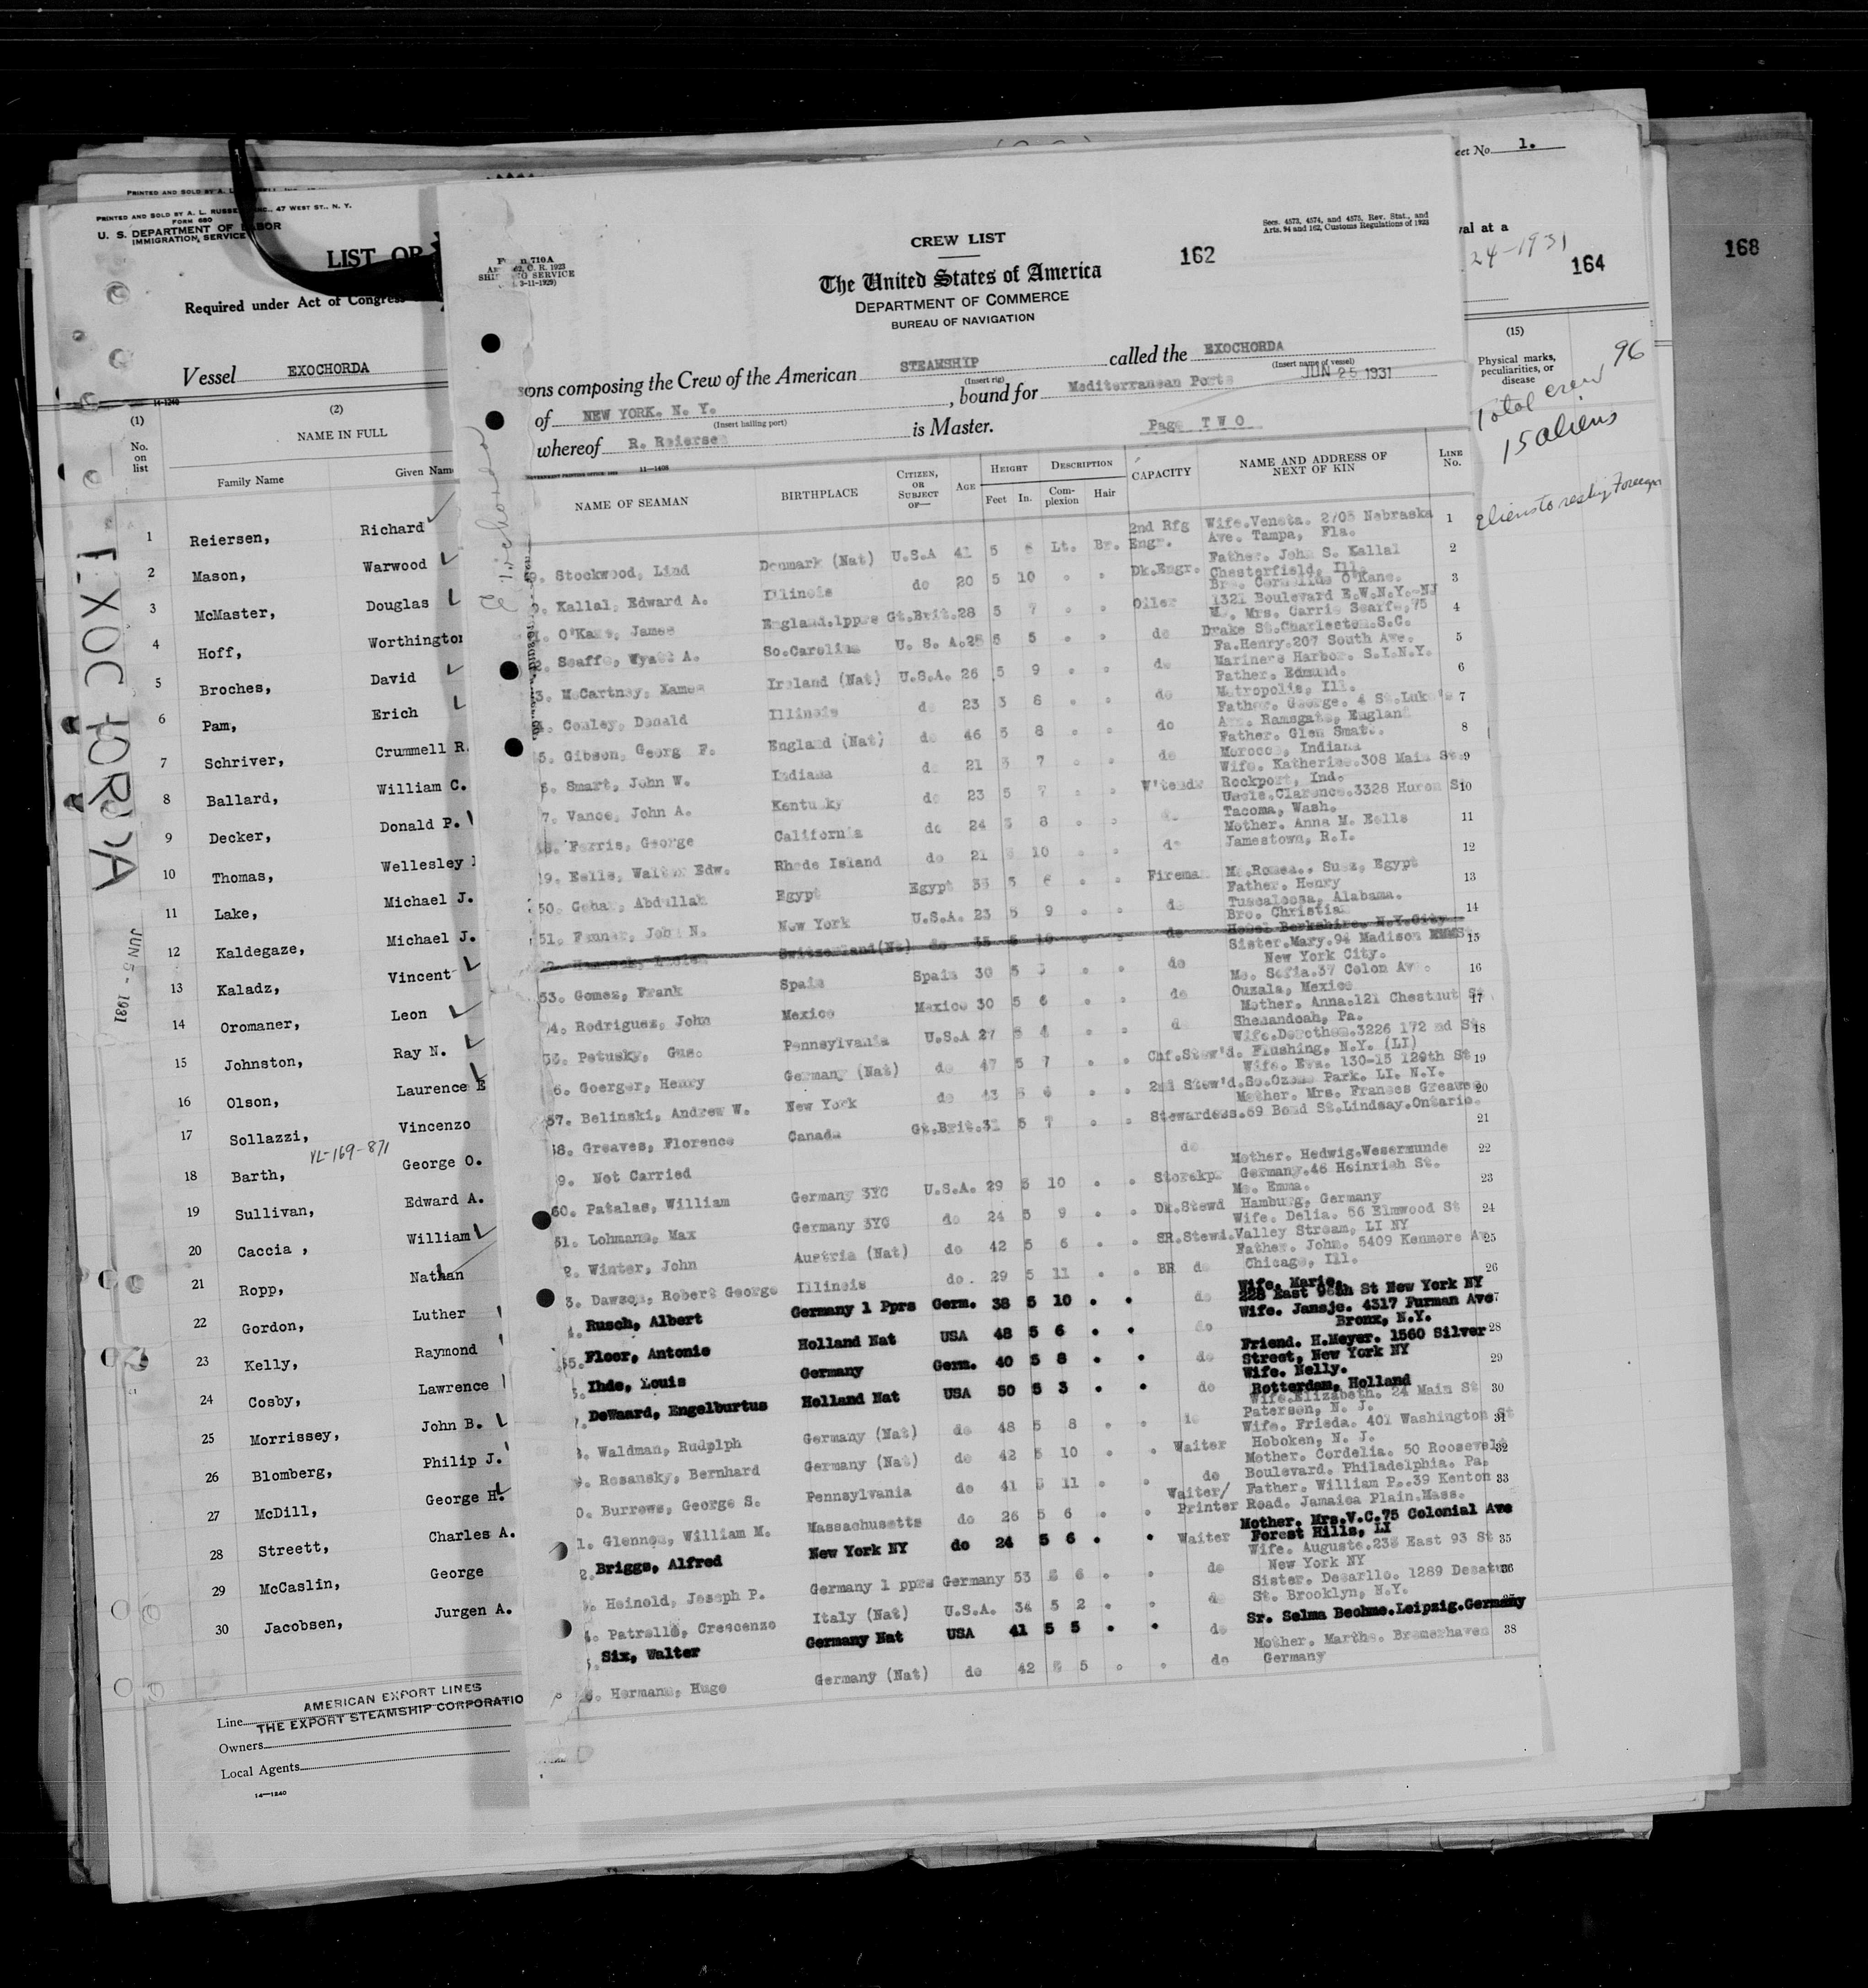 PRINTED AND SOLD BY A. L.
PRINTED AND SOLD BY A. L. RUSSE INC., 47 WEST ST., N. Y.
FORM 680
U. S. DEPARTMENT OF LABOR
IMMIGRATION SERVICE
LIST OR
Required under Act of Congress
Vessel EXOCHORDA
14-1240
(1) (2)
No. on list
NAME IN FULL
Family Name Given Nam
1 Reiersen, Richard
2 Mason, Warwood
3 McMaster, Douglas
4 Hoff, Worthington
5 Broches, David
6 Pam, Erich
7 Schriver, Crummell R.
8 Ballard, William C.
9 Decker, Donald P.
10 Thomas, Wellesley
11 Lake, Michael J.
12 Kaldegaze, Michael J.
13 Kaladz, Vincent
14 Oromaner, Leon
15 Johnston, Ray N.
16 Olson, Laurence E
17 Sollazzi, Vincenzo
VL-169-871
18 Barth, George O.
19 Sullivan, Edward A.
20 Caccia, William
21 Ropp, Nathan
22 Gordon, Luther
23 Kelly, Raymond
24 Cosby, Lawrence
25 Morrissey, John B.
26 Blomberg, Philip J.
27 McDill, George H.
28 Streett, Charles A.
29 McCaslin, George
30 Jacobsen, Jurgen A.
Line AMERICAN EXPORT LINES
THE EXPORT STEAMSHIP CORPORATIO
Owners
Local Agents
14—1240
EXOCHORDA
JUN 5 - 1931
SHIPPING SERVICE
3-11-1929)
CREW LIST
The United States of America
DEPARTMENT OF COMMERCE
BUREAU OF NAVIGATION
162
Secs. 4573, 4574, and 4575, Rev. Stat., and
Arts. 94 and 162, Customs Regulations of 1923
sons composing the Crew of the American STEAMSHIP called the EXOCHORDA
(Insert rig) (Insert name of vessel)
JUN 25 1931
of NEW YORK. N. Y. , bound for Mediterranean Ports
(Insert hailing port)
whereof R. Reiersen is Master. Page T W O
GOVERNMENT PRINTING OFFICE 11—1408
NAME OF SEAMAN BIRTHPLACE CITIZEN, OR SUBJECT OF— AGE HEIGHT Feet In. DESCRIPTION Complexion Hair CAPACITY NAME AND ADDRESS OF NEXT OF KIN LINE No.
9. Stockwood, Lind Denmark (Nat) U.S.A 41 5 Lt. Br. 2nd Rfg Engr. Wife. Veneta. 2705 Nebraska Ave. Tampa, Fla. 1
0. Kallal, Edward A. Illinois do 20 5 10 Dk.Engr. Father. John S. Kallal Chesterfield, Ill. 2
1. O'Kane, James England.1pprs Gt.Brit.28 5 7 Oiler Bro. Cornelius O'Kane. 1321 Boulevard E.W.N.Y.-NJ 3
2. Scaffe, Wyatt A. So.Carolina U. S. A. 28 5 5 do Mo. Mrs. Carrie Scarfe,75 Drake St.Charleston.S.C. 4
3. McCartney, Xames Ireland (Nat) U.S.A. 26 5 9 do Fa.Henry.207 South Ave. Mariners Harbor. S.I.N.Y. 5
4. Conley, Donald Illinois do 23 5 8 do Father. Edmund. Metropolis, Ill. 6
5. Gibson, Georg F. England (Nat) do 46 5 8 do Father. George. 4 St.Luke's Ave. Ramsgate, England 7
6. Smart, John W. Indiana do 21 5 7 do Father. Glen Smat.. Morocco, Indiana 8
7. Vance, John A. Kentucky do 23 5 7 W'tendr Wife. Katherine.308 Main St. Rockport, Ind. 9
48. Ferris, George California do 24 5 8 do Uncle.Clarence.3328 Huron St Tacoma, Wash. 10
49. Eells, Walter Edw. Rhode Island do 21 5 10 do Mother. Anna M. Eells Jamestown, R.I. 11
12
50. Gohar, Abdullah Egypt Egypt 33 5 6 Fireman Mo.Romea.. Suez, Egypt
51. Fauner, John N. New York U.S.A. 23 5 9 do Father. Henry Tuscaloosa, Alabama. 13
Switzerland(Nt) do 35 5 10 do Bro. Christian Hotel Berkshire. N.Y.City 14
53. Gomez, Frank Spain Spain 30 5 do Sister.Mary.94 Madison New York City. 15
54. Rodriguez, John Mexico Mexico 30 5 6 do Mo. Sofia.37 Colon Ave. Ouzala, Mexico 16
55. Petusky, Gus. Pennsylvania U.S.A 27 5 4 do Mother. Anna.121 Chestnut St Shenandoah, Pa. 17
56. Goerger, Henry Germany (Nat) do 47 5 7 Chf.Stew'd. Wife.Dorothea.3226 172 nd St Flushing, N.Y. (LI) 18
57. Belinski, Andrew W. New York do 43 5 6 2nd Stew'd. Wife. Eva. 130-15 129th St So.Ozone Park. LI. N.Y. 19
58. Greaves, Florence Canada Gt.Brit.31 5 7 Stewardess. Mother. Mrs. Frances Greaves 69 Bond St.Lindsay.Ontario. 20
9. Not Carried do 21
60. Patalas, William Germany 3YC U.S.A. 29 5 10 Storekpr Mother. Hedwig.Wesermunde Germany.46 Heinrich St. 22
61. Lohmann, Max Germany 3YC do 24 5 9 Dk.Stewd Mo. Emma. Hamburg, Germany 23
2. Winter, John Austria (Nat) do 42 5 6 SR.Stewd. Wife. Delia. 56 Elmwood St Valley Stream, LI NY 24
3. Dawson, Robert George Illinois do. 29 5 11 BR do Father. John. 5409 Kenmore Av Chicago, Ill. 25
26
4. Rusch, Albert Germany 1 Pprs Germ. 38 5 10 do Wife. Marie. 228 East 96th St New York NY
65. Floor, Antonie Holland Nat USA 48 5 6 do Wife. Jansje. 4317 Furman Ave Bronx, N.Y.
Ihde, Louis Germany Germ. 40 5 8 do Friend. H.Meyer. 1560 Silver Street, New York NY 28
DeWaard, Engelburtus Holland Nat USA 50 5 3 do Wife. Nelly. Rotterdam, Holland 29
8. Waldman, Rudolph Germany (Nat) do 48 5 8 do Wife.Elizabeth. 24 Main St Paterson, N. J. 30
9. Rosansky, Bernhard Germany (Nat) do 42 5 10 Waiter Wife. Frieda. 401 Washington St Hoboken, N. J. 31
0. Burrows, George S. Pennsylvania do 41 5 11 do Mother. Cordelia. 50 Roosevelt Boulevard. Philadelphia. Pa. 32
1. Glennon, William M. Massachusetts do 26 5 6 Waiter/ Printer Father. William P..39 Kenton Road. Jamaica Plain.Mass. 33
2. Briggs, Alfred New York NY do 24 5 6 Waiter Mother. Mrs.V.C.75 Colonial Ave Forest Hills, LI
Heinold, Joseph P. Germany 1 pprs Germany 53 5 6 do Wife. Auguste.235 East 93 St New York NY 35
4. Patrello, Crescenzo Italy (Nat) U.S.A. 34 5 2 do Sister. Desarllo. 1289 Decatur St. Brooklyn, N.Y. 36
Six, Walter Germany Nat USA 41 5 5 do Sr. Selma Beohme.Leipzig.Germany
6. Hermann, Hugo Germany (Nat) do 42 5 5 do Mother. Martha. Bremerhaven Germany 38
eet No. 1.
val at a
24-1931
164
168
(15)
Physical marks, peculiarities, or disease
96
Total crew
15 aliens
Aliens to reship Foreign